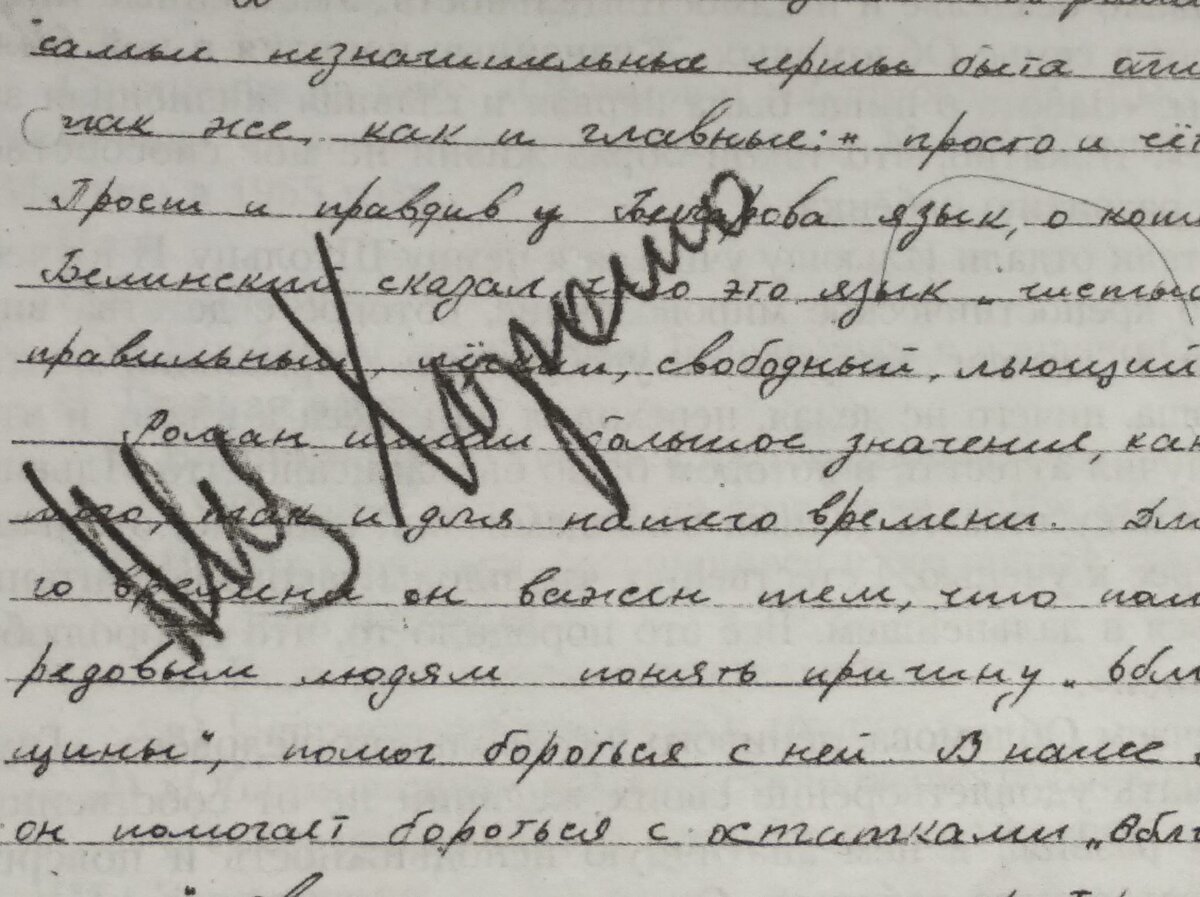 самые незначительные черты быта
так же, как и главные:" просто и
Прост и правдив у язык, о
Белинский сказал, что это язык "чистый
правильный, лёгкий, свободный, льющий
Роман имел большое значение, как
того, так и для нашего времени. Для
го времени он важен тем, что
редовым людям понять причину "
щины", помог бороться с ней. В наше
он помогает бороться с остатками "Обл
Хорошо